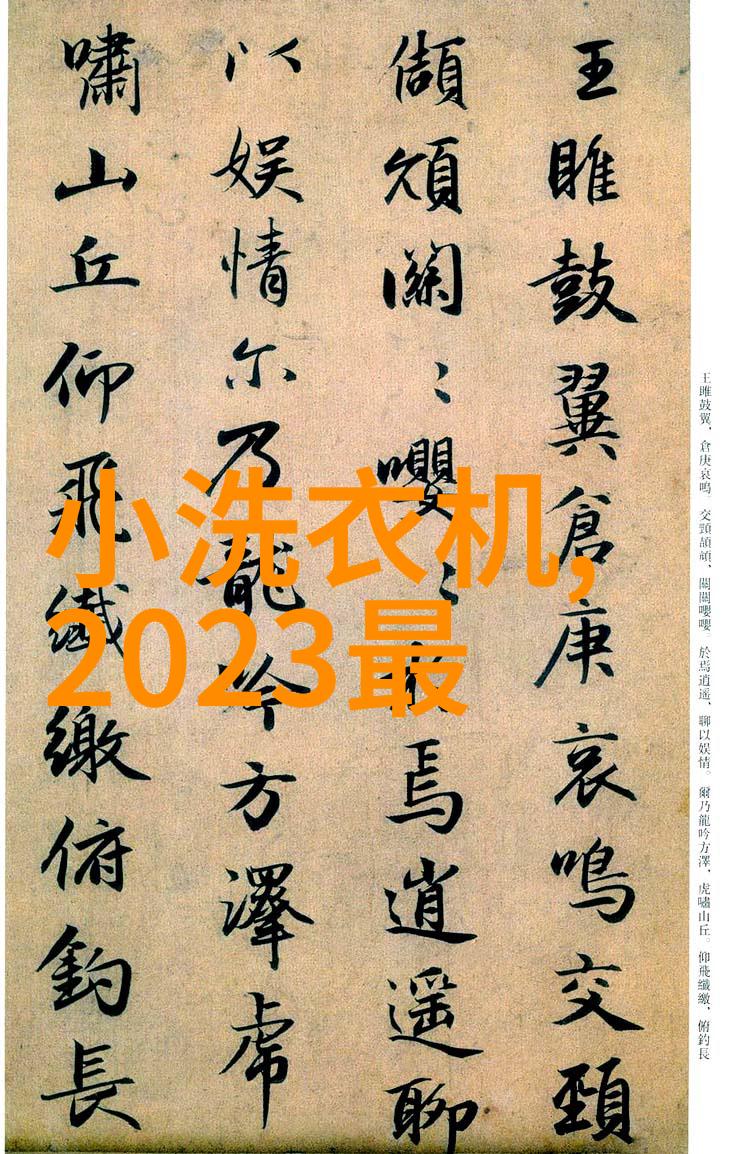 王雎鼓翼倉庚哀鳴交頸
頡頏關〻嚶〻於焉逍遥聊
以娱情尓乃龍吟方澤虎
嘯山丘仰飛纖繳俯釣長
小洗衣机,
2023最
王雎鼓翼，倉庚哀鳴。交頸頡頏，關關嚶嚶。於焉逍遥，聊以娱情。爾乃龍吟方澤，虎嘯山丘。仰飛纖繳，俯釣長